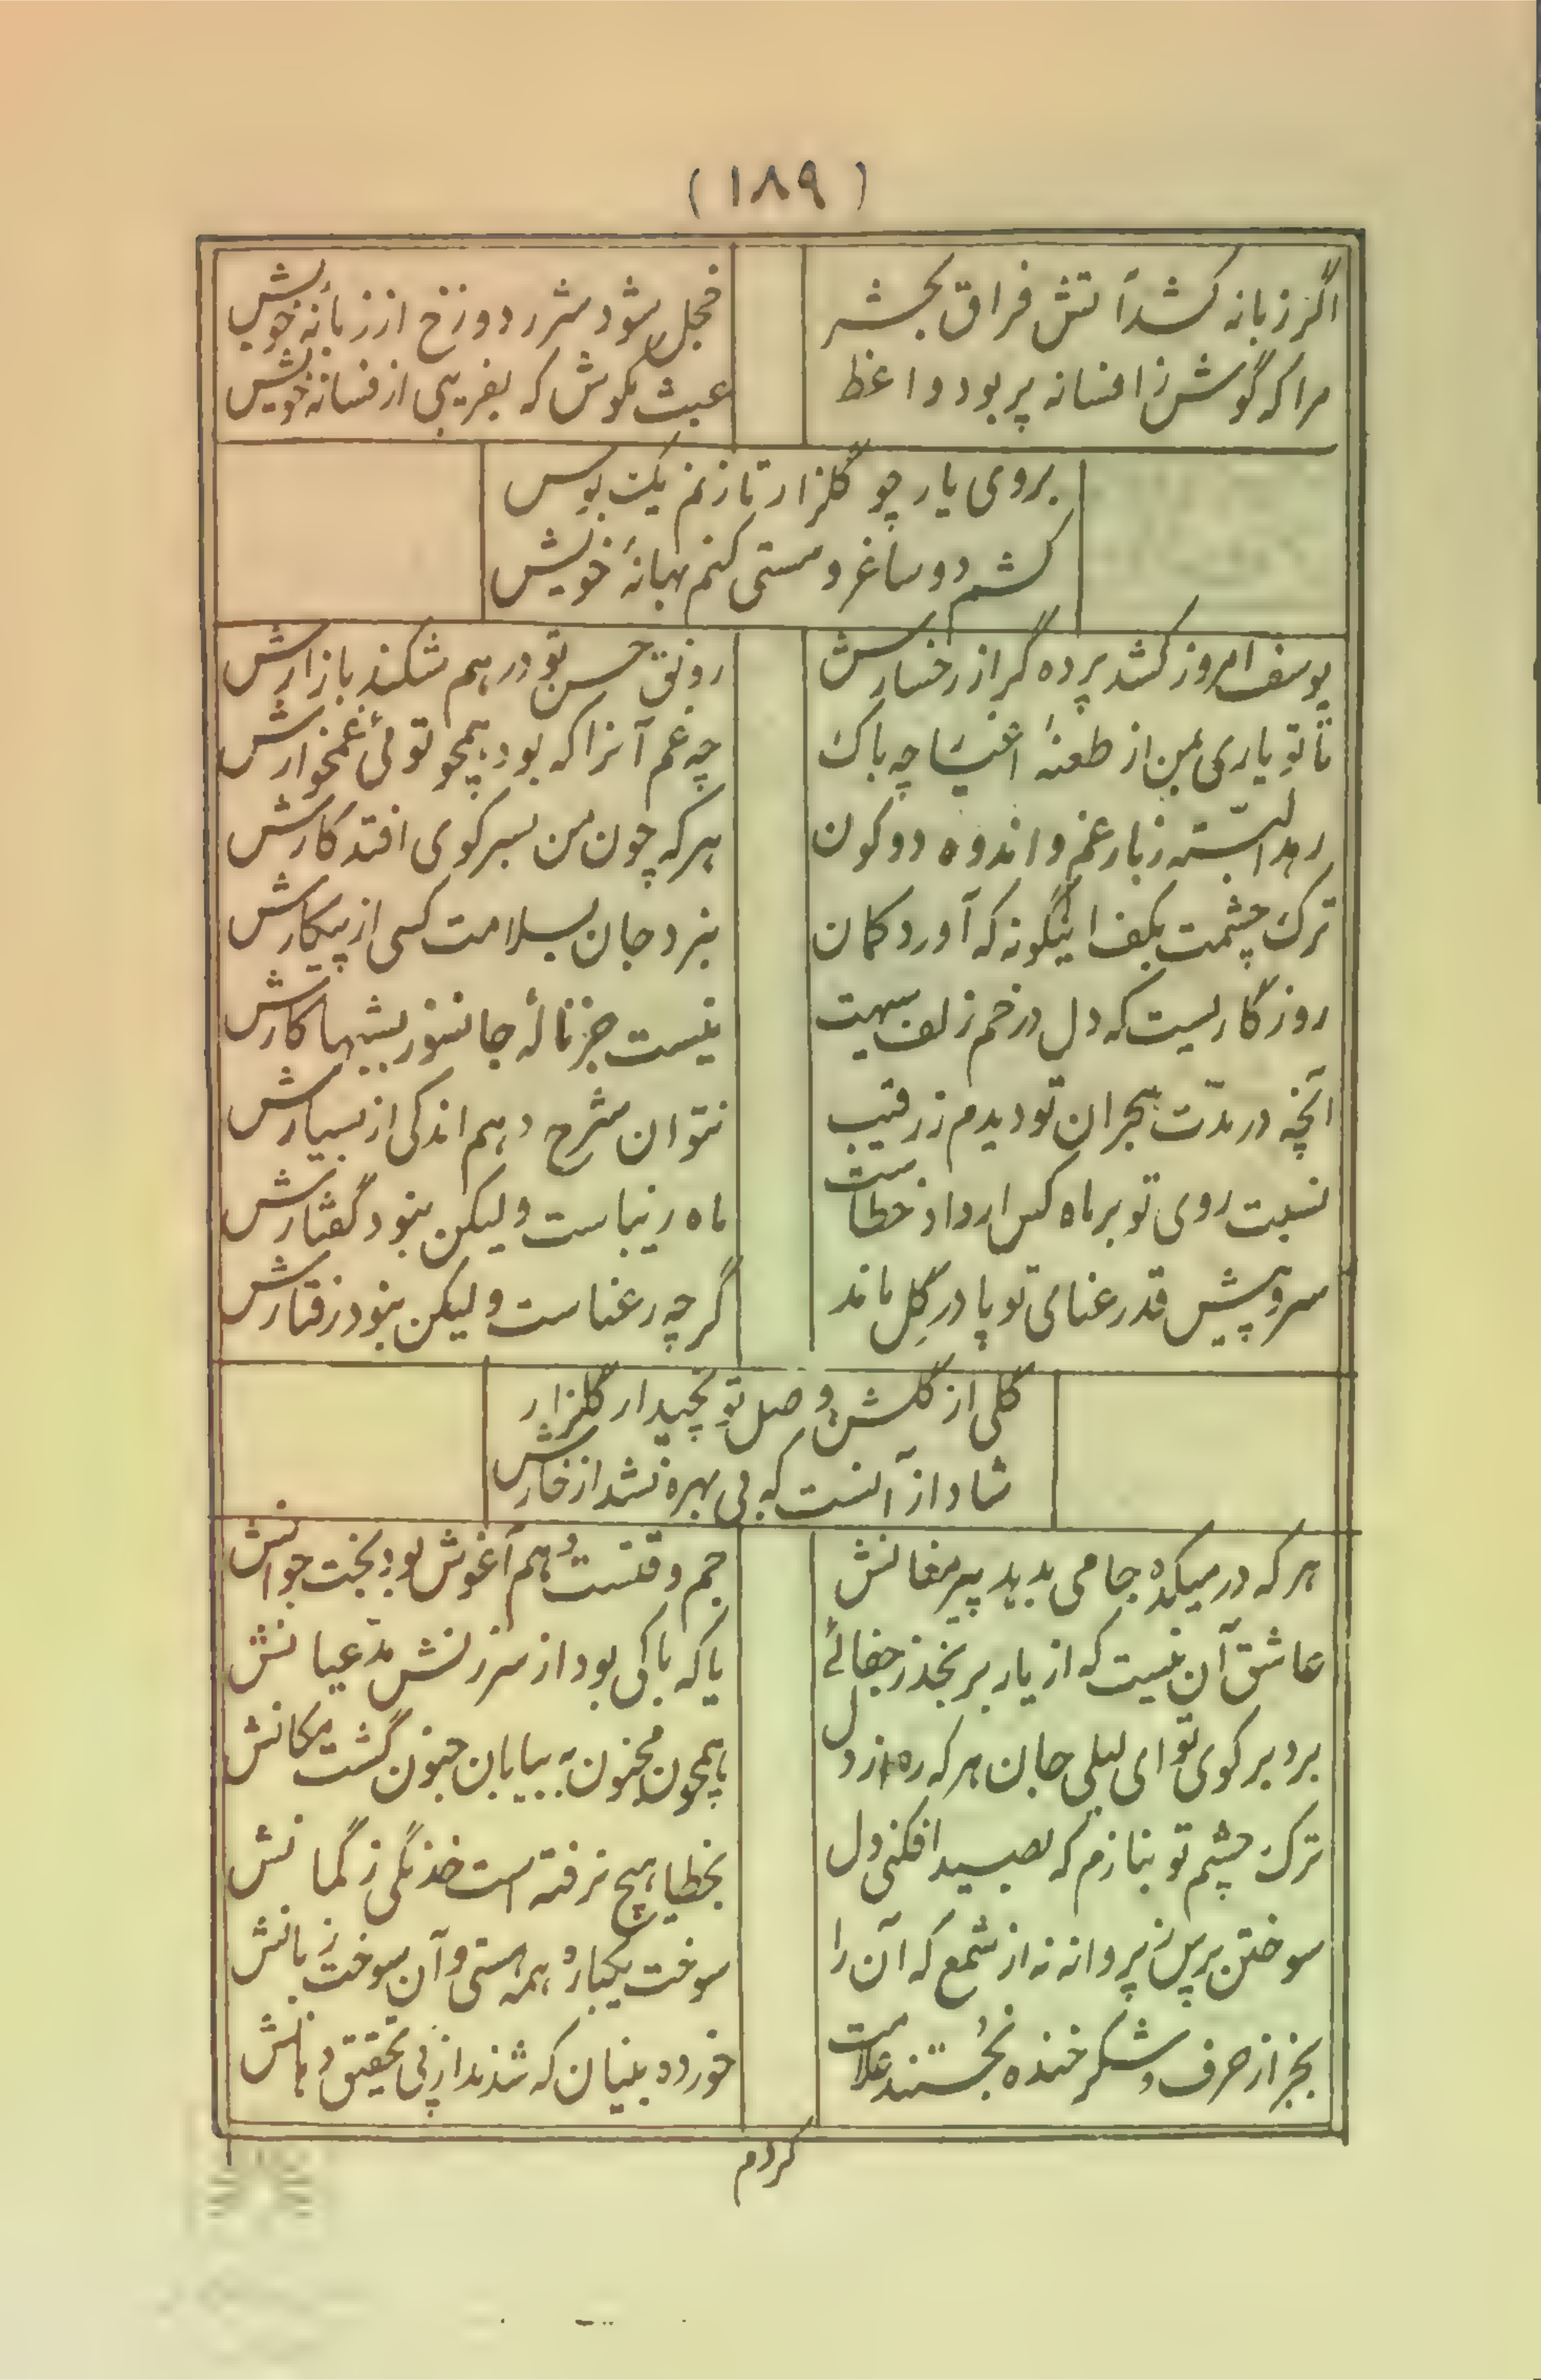 (۱۸۹)
اگر زبانه کشد آتش فراق بحشر
خجل شود شرر دوزخ از زبانهٔ خویش
مرا که گوش ز افسانه پر بود واعظ
عبث مکوش که بفریبی از فسانهٔ خویش
بروی یار چو گلزار تا زنم یکت بوس
کشم دو ساغر و مستی کنم بهانهٔ خویش
یوسف امروز کشد پرده گر از رخسارش
رونق حسن تو در هم شکند بازارش
تا تو یاری بمن از طعنهٔ اغیار چه باک
چه غم آنرا که بود همچو توئی غمخوارش
ز بار غم و اندوه دو کون
هرکه چون من بسر کوی افتد کارش
ترک چشمت بکف اینگونه که آورد کمان
نبرد جان بسلامت کسی از پیکارش
روزگاریست که دل در خم زلف سیهت
نیست جز نالهٔ جانسوز بشبها کارش
آنچه در مدّت هجران تو دیدم ز رقیب
نتوان شرح دهم اندکی از بسیارش
نسبت روی تو بر ماه کس ار داد خطاست
ماه زیباست ولیکن نبود گفتارش
سرو پیش قد رعنای تو پا در گِل ماند
گرچه رعناست ولیکن نبود رفتارش
گلی از گلشن وصل تو نچید ار گلزار
شاد از آنست که بی بهره نشد از خارش
هرکه در میکده جامی بدهد پیر مغانش
جم وقتست و هم آغوش بود بخت جوانش
عاشق آن نیست که از یار برنجد ز جفائے
یا که باکی بود از سرزنش مدّعیانش
برد بر کوی تو ای لیلی جان هرکه ره از دل
همچون مجنون به بیابان جنون گشت مکانش
ترک چشم تو بنازم که بصید افکنی دل
بخطا هیچ نرفته است خدنگی ز کمانش
سوختن پرس ز پروانه نه از شمع که آن را
سوخت یکباره همه هستی و آن سوخت زبانش
بجز از حرف و شکر خنده نجستند علامت
خورده بینان که شدند از پی تحقیق دهانش
کردم